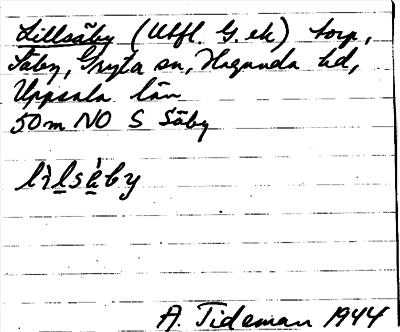 Lillsäby (Utfl. G. ek) torp,
Säby, Gryta sn, Hagunda hd,
Uppsala län
50 m NO S Säby
lìlsèby
A. Tideman 1944